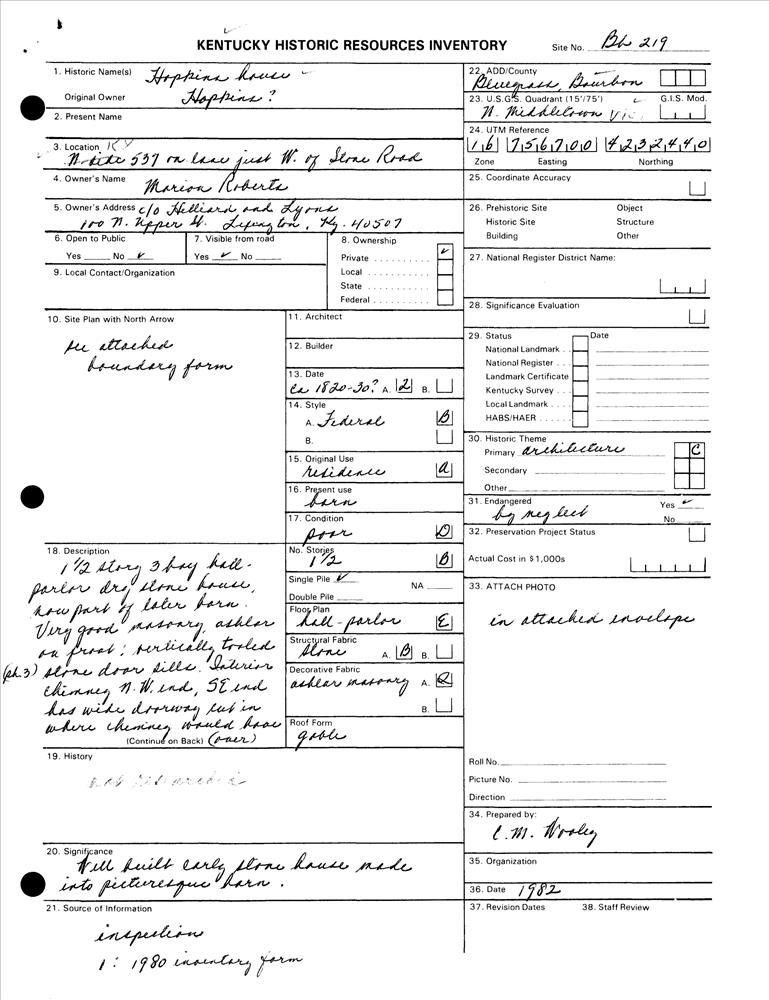 KENTUCKY HISTORIC RESOURCES INVENTORY
Site No. Bb 219
1. Historic Name(s) Hopkins house
Original Owner Hopkins?
2. Present Name
3. Location KY
N side 537 on lane just W. of Stone Road
4. Owner's Name Marion Roberts
5. Owner's Address c/o Hilliard and Lyons
100 N. Upper St. Lexington, Ky. 40507
6. Open to Public
Yes No ✓
7. Visible from road
Yes ✓ No
8. Ownership
Private ✓
Local
State
Federal
9. Local Contact/Organization
10. Site Plan with North Arrow
see attached
boundary form
11. Architect
12. Builder
13. Date
Ca 1820-30? A. 2 B.
14. Style
A. Federal B
B.
15. Original Use
residence A
16. Present use
barn
17. Condition
poor D
18. Description
1 1/2 story 3 bay hall-
parlor dry stone house,
now part of later barn.
Very good masonry, ashlar
on front; vertically tooled
(ph.3) stone door sills. Interior
chimney N.W. end, SE end
has wide doorway cut in
where chimney would have
(Continue on Back) (over)
No. Stories
1 1/2 B
Single Pile ✓ NA
Double Pile
Floor Plan
hall-parlor E
Structural Fabric
stone A. B B.
Decorative Fabric
ashlar masonry A. Q
B.
Roof Form
gable
19. History
not researched
20. Significance
Well built early stone house made
into picturesque barn.
21. Source of Information
inspection
1: 1980 inventory form
22. ADD/County
Bluegrass, Bourbon
23. U.S.G.S. Quadrant (15'/75') G.I.S. Mod.
N. Middletown
24. UTM Reference
16 756700 4232440
Zone Easting Northing
25. Coordinate Accuracy
26. Prehistoric Site Object
Historic Site Structure
Building Other
27. National Register District Name:
28. Significance Evaluation
29. Status Date
National Landmark
National Register
Landmark Certificate
Kentucky Survey
Local Landmark
HABS/HAER
30. Historic Theme
Primary architecture C
Secondary
Other
31. Endangered Yes ✓
by neglect No
32. Preservation Project Status
Actual Cost in $1,000s
33. ATTACH PHOTO
in attached envelope
Roll No.
Picture No.
Direction
34. Prepared by:
C.M. Wooley
35. Organization
36. Date 1982
37. Revision Dates 38. Staff Review